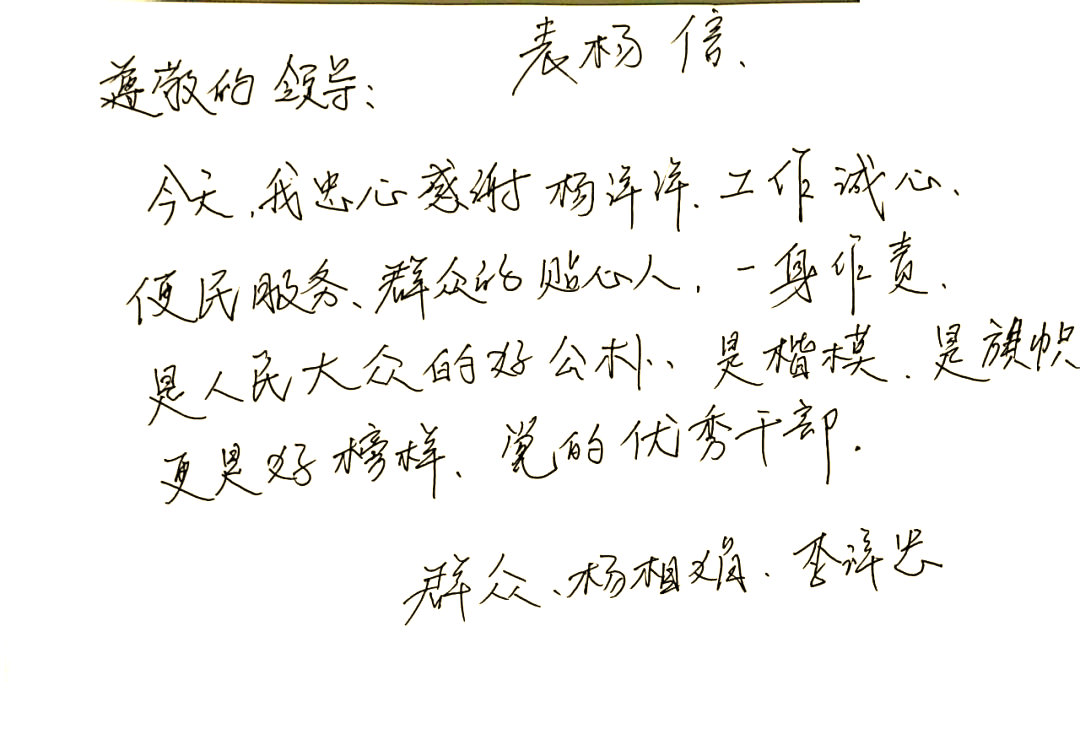 表杨信、
尊敬的领导：
今天，我忠心感谢杨洋洋、工作诚心、
便民服务、群众的贴心人，一身作责、
是人民大众的好公朴、是楷模、是旗帜
更是好榜样、党的优秀干部.
群众、杨相娟、李泽忠